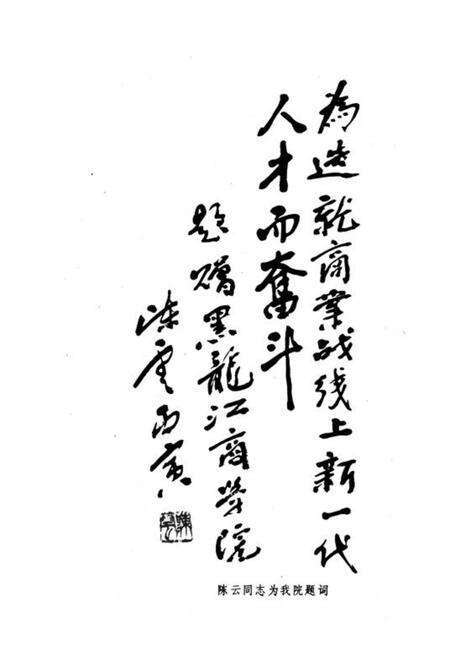 為造就商業战线上新一代
人才而奮斗
题赠黑龍江商学院
陈雲丙寅
陈云同志为我院题词